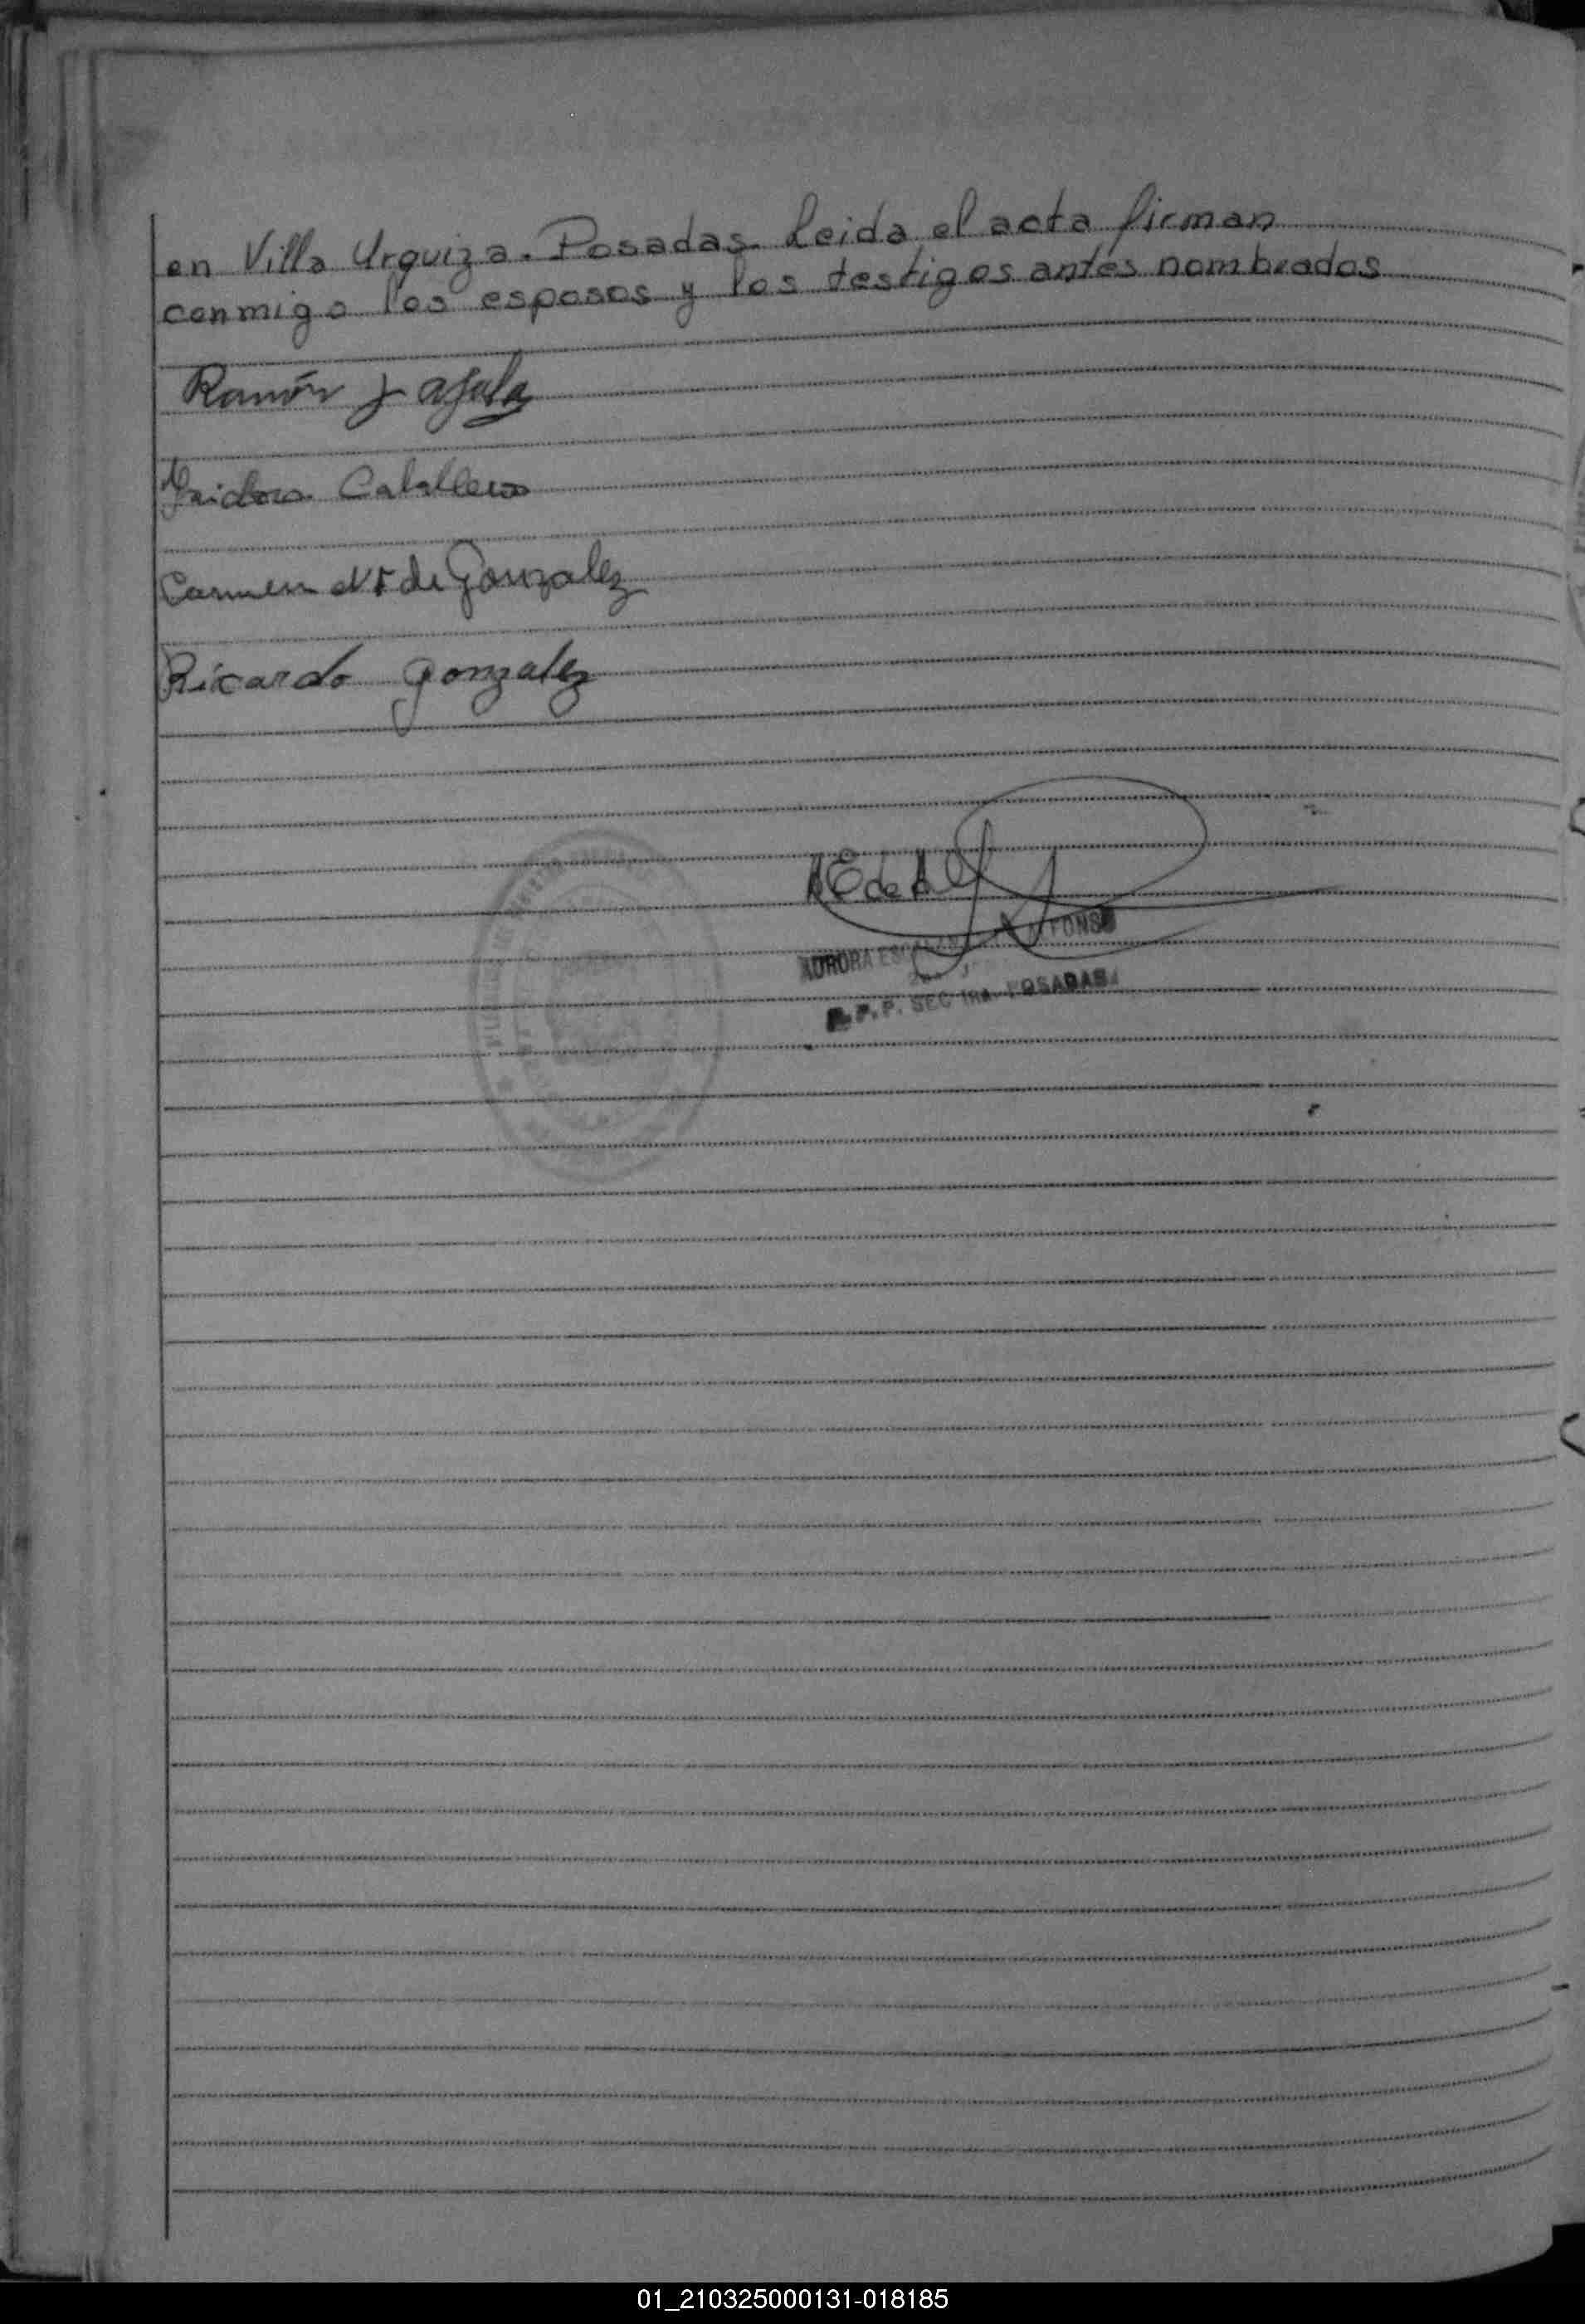 en Villa Urquiza. Posadas. Leida el acta firman
conmigo los esposos y los testigos antes nombrados
Ramón
Caballero
Carmen de Gonzalez
Ricardo Gonzalez
AURORA
SEC 1RA. POSADAS
01_210325000131-018185